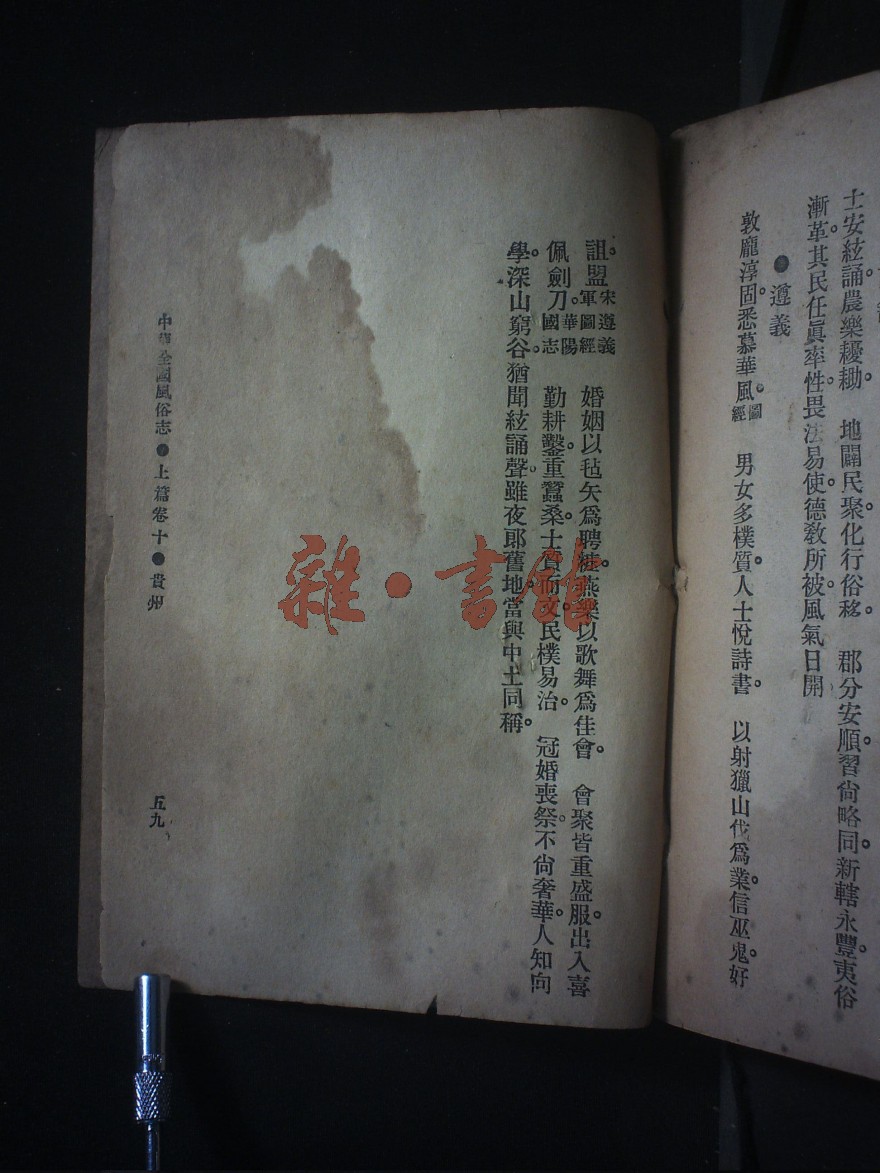 士安絃誦農樂耰耡。　地闢民聚化行俗移。　郡分安順習尙略同。新轄永豐夷俗
漸革。其民任眞率性畏法易使。德敎所被風氣日開
●遵義
敦龐淳固。悉慕華風。圖經　男女多樸質。人士悅詩書。　以射獵山伐爲業。信巫鬼好
詛盟。宋遵義軍圖經　婚姻以毡矢爲聘。燕樂以歌舞爲佳會。　會聚皆重盛服。出入喜
佩劍刀。華陽國志　勤耕鑿。重蠶桑。士而文。民樸易治。　冠婚喪祭。不尙奢華。人知向
學。深山窮谷。猶聞絃誦聲。雖夜郎舊地。當與中土同稱。
中華全國風俗志●上篇卷十●貴州
五九
雜·書館